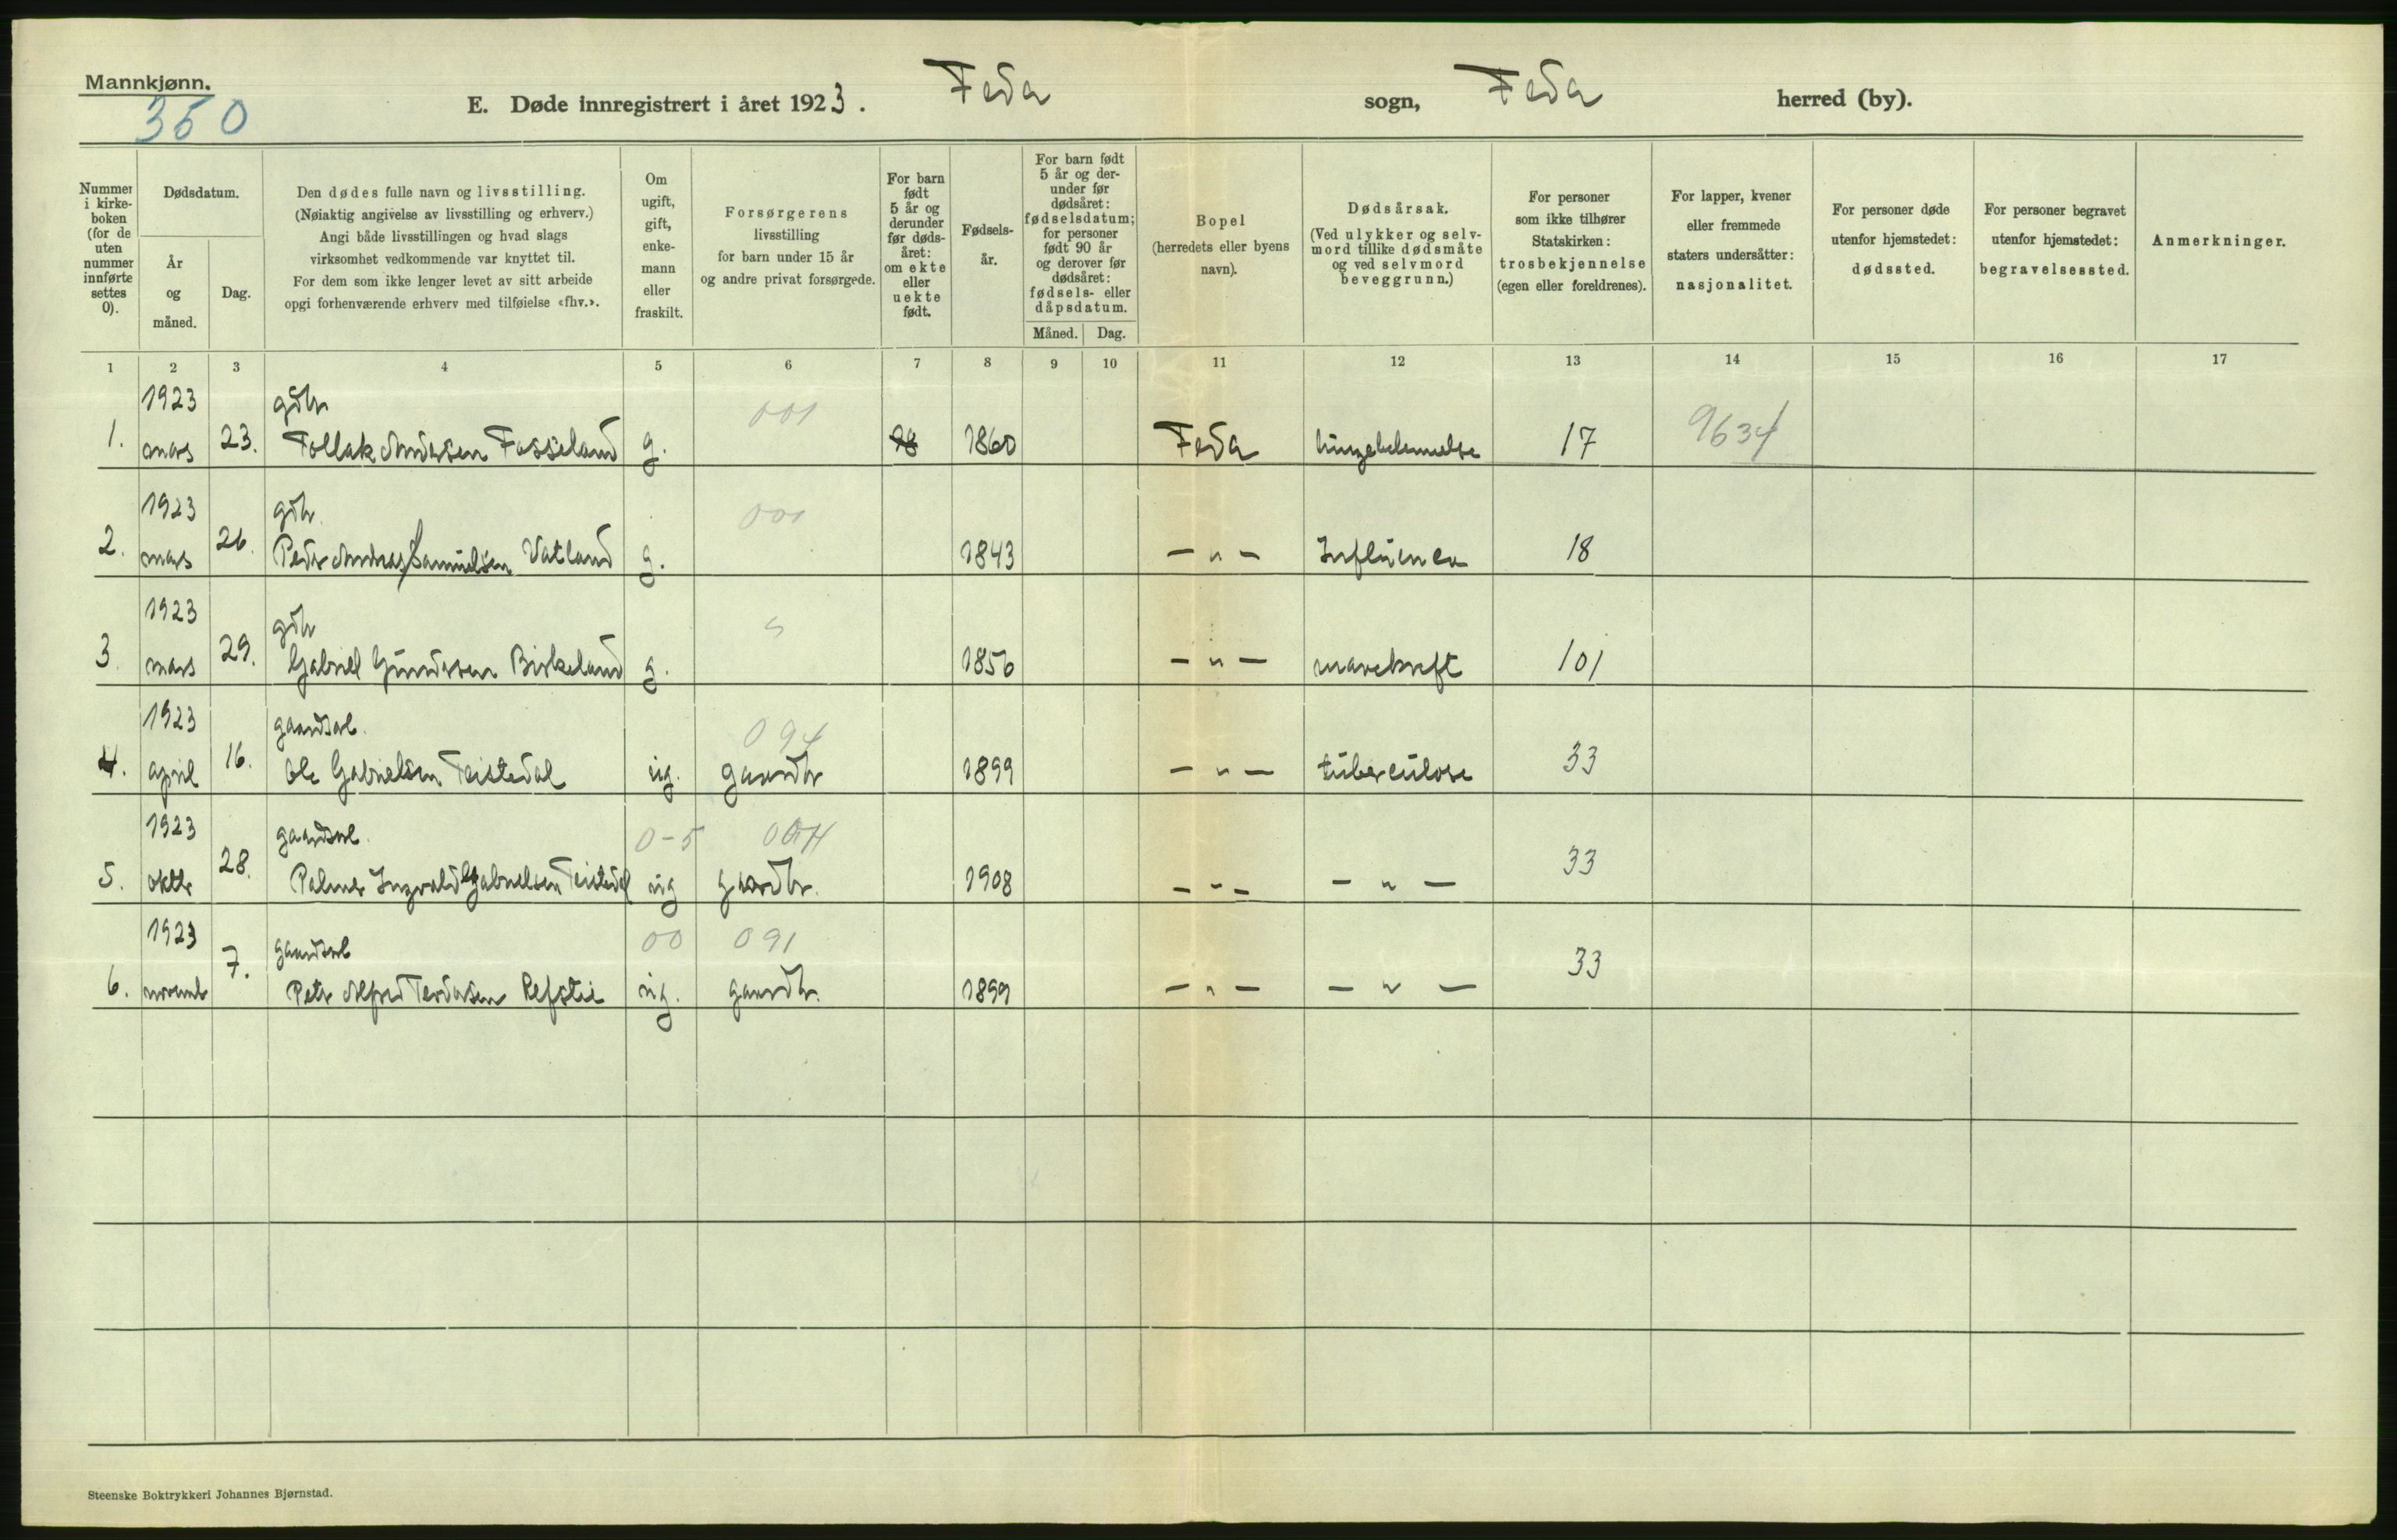 Mannkjønn.
350
E. Døde innregistrert i året 1923. Feda sogn, Feda herred (by).
Nummer i kirke-boken (for de uten nummer innførte settes 0).
Dødsdatum.
År og måned.
Dag.
Den dødes fulle navn og livsstilling.
(Nøiaktig angivelse av livsstilling og erhverv.)
Angi både livsstillingen og hvad slags
virksomhet vedkommende var knyttet til.
For dem som ikke lenger levet av sitt arbeide
opgi forhenværende erhverv med tilføielse «fhv.».
Om ugift, gift, enke-mann eller fraskilt.
Forsørgerens
livsstilling
for barn under 15 år
og andre privat forsørgede.
For barn født 5 år og derunder før døds-året: om ekte eller uekte født.
Fødsels-år.
For barn født 5 år og der-under før dødsåret: fødselsdatum; for personer født 90 år og derover før dødsåret: fødsels- eller dåpsdatum.
Måned. Dag.
Bopel
(herredets eller byens
navn).
Dødsårsak.
(Ved ulykker og selv-
mord tillike dødsmåte
og ved selvmord
beveggrunn.)
For personer
som ikke tilhører
Statskirken:
trosbekjennelse
(egen eller foreldrenes).
For lapper, kvener
eller fremmede
staters undersåtter:
nasjonalitet.
For personer døde
utenfor hjemstedet:
dødssted.
For personer begravet
utenfor hjemstedet:
begravelsessted.
Anmerkninger.
1 2 3 4 5 6 7 8 9 10 11 12 13 14 15 16 17
1923 gdbr 001
1. mars 23. Tollak Andersen Fosseland g. 1860 Feda lungebetennelse 17 9634
1923 gdbr. 001
2. mars 26. Peder Andreas Samuelsen Vatland g. 1843 – " – Influenca 18
1923 gdbr
3. mars 29. Gabriel Gundersen Birkeland g. 1856 – " – mavekreft 101
1923 gaardsarb. 094
4. april 16. Ole Gabrielsen Teistedal ug. gaardbr 1899 – " – tuberculose 33
1923 gaardsarb. 0-5
5. oktbr 28. Palmer Ingvald Gabrielsen Teistedal ug gaardbr. 1908 – " – – " – 33
1923 gaardsarb 00 091
6. novemb 7. Peter Alfred Tordersen Refstie ug. gaardbr. 1899 – " – – " – 33
Steenske Boktrykkeri Johannes Bjørnstad.